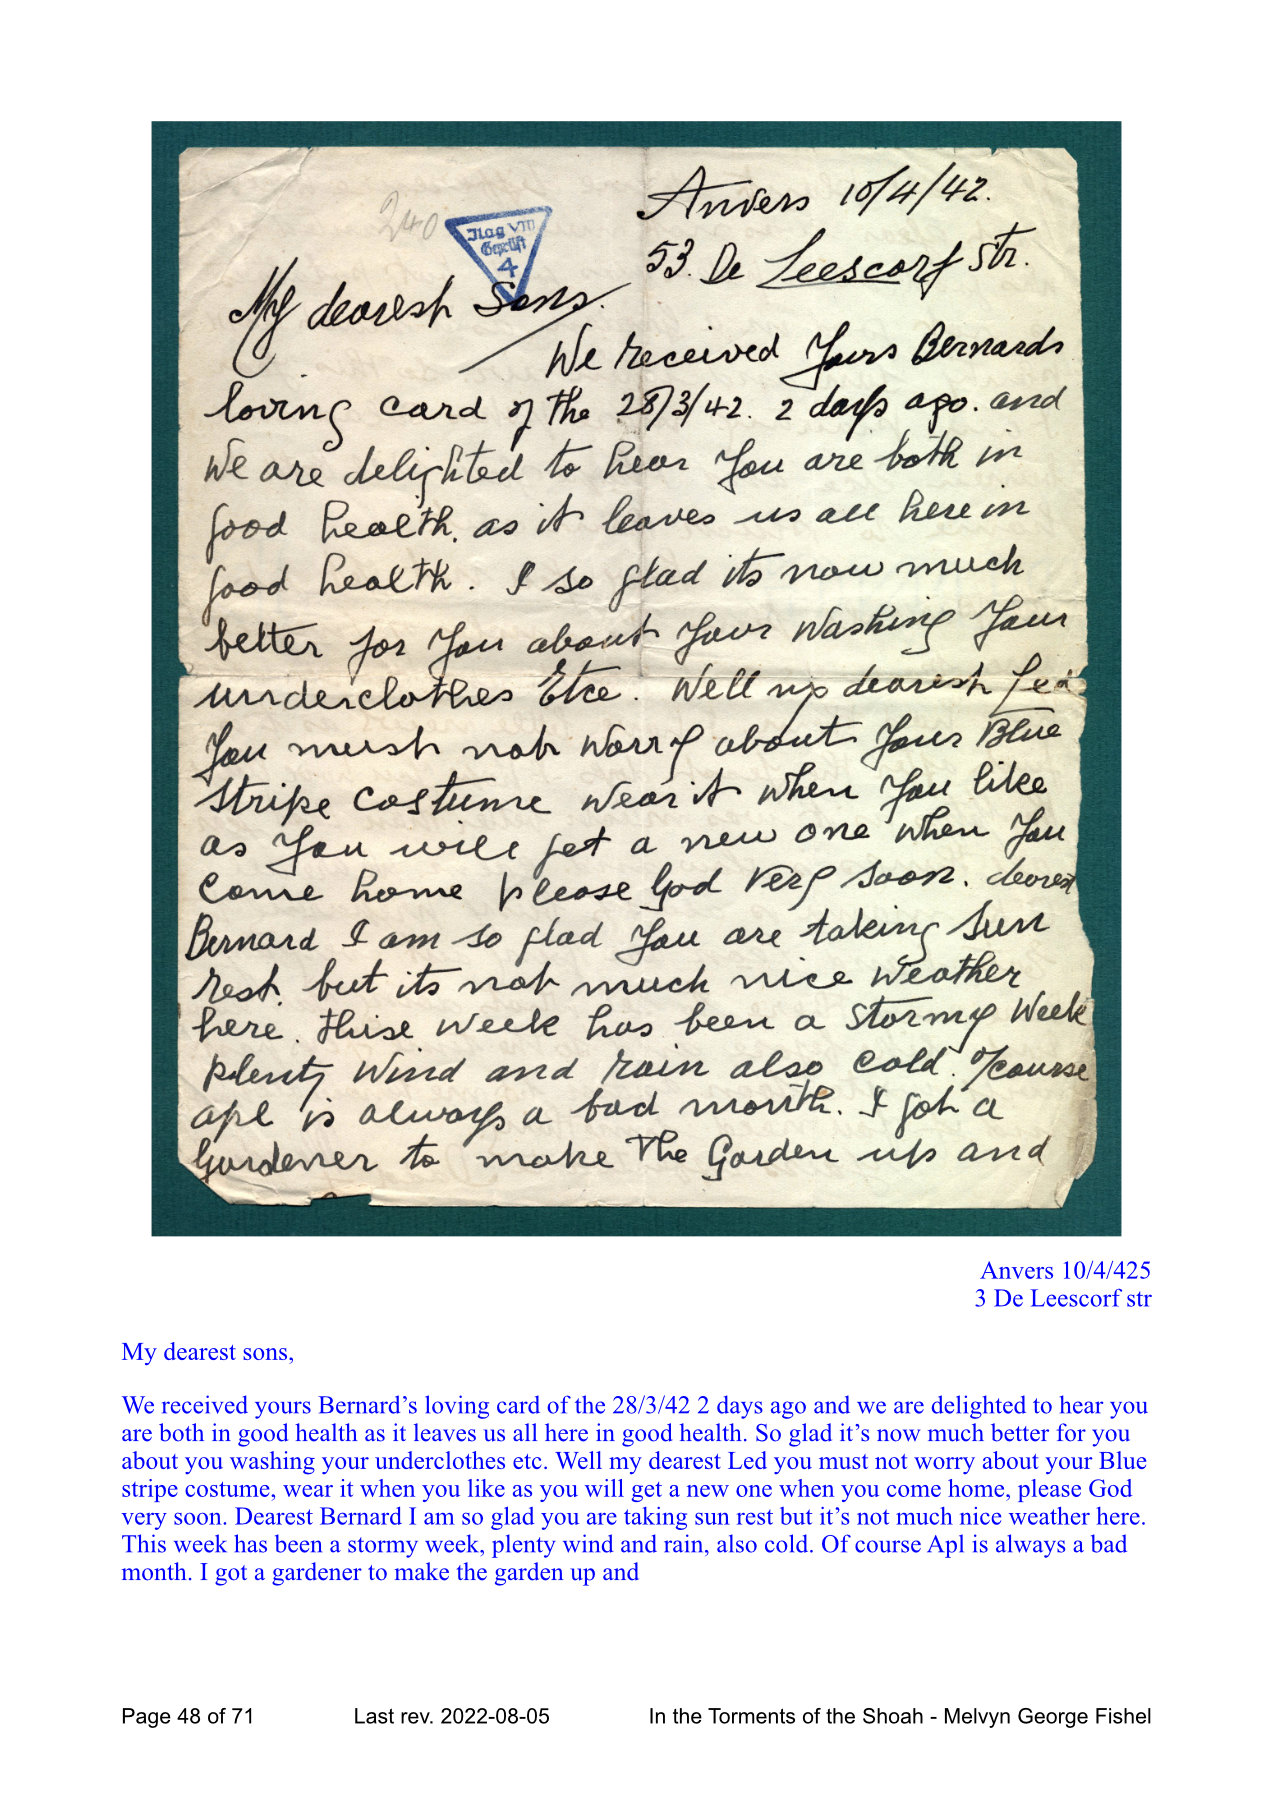 Anvers 10/4/42.
240
Ilag VIII
Geprüft
4
53. De Leescorf Str.
My dearesh Sons.
We received Yours Bernards
loving card of the 28/3/42. 2 days ago. and
We are delighted to hear You are both in
good health. as it leaves us all here in
good health. I so glad its now much
better for You about Your Washing Your
underclothes Etce. Well my dearesh Led
You mush noh Worry about Your Blue
Stripe Costume Wear it When You like
as You will get a new one When You
Come home please God Very Soon. dearest
Bernard I am so glad You are taking Sun
Rest. but its noh much nice Weather
here. thise Week has been a Stormy Week
plenty Wind and Rain also Cold. of course
apl is always a bad month. I goh a
Gardener to make The Garden up and
Anvers 10/4/425
3 De Leescorf str
My dearest sons,
We received yours Bernard’s loving card of the 28/3/42 2 days ago and we are delighted to hear you
are both in good health as it leaves us all here in good health. So glad it’s now much better for you
about you washing your underclothes etc. Well my dearest Led you must not worry about your Blue
stripe costume, wear it when you like as you will get a new one when you come home, please God
very soon. Dearest Bernard I am so glad you are taking sun rest but it’s not much nice weather here.
This week has been a stormy week, plenty wind and rain, also cold. Of course Apl is always a bad
month. I got a gardener to make the garden up and
Page 48 of 71 Last rev. 2022-08-05 In the Torments of the Shoah - Melvyn George Fishel